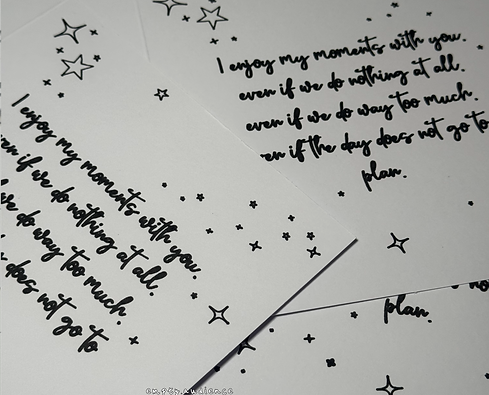 I enjoy my moments with you.
even if we do nothing at all.
even if we do way too much.
en if the day does not go to
plan.
I enjoy my moments with you.
en if we do nothing at all.
we do way too much.
does not go to
no
plan.